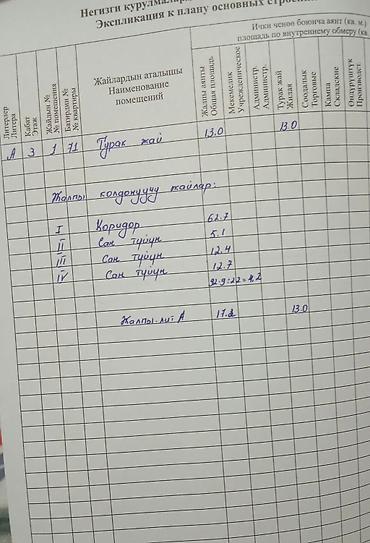 Негизги курулмалар
Экспликация к плану основных строени
Ички ченөө боюнча аянт (кв. м.)
площадь по внутреннему обмеру (кв.
Литерлер
Литера
Кабат
Этаж
Жайдын №
№ помещения
Батирдин №
№ квартиры
Жайлардын аталышы
Наименование
помещений
Жалпы аянты
Общая площадь
Мекемелик
Учрежденческие
Администр.
Администр.
Турак жай
Жилая
Соодалык
Торговые
Кампа
Складские
Өндүрүштүк
Производст.
А 3 1 71 Турак жай 13.0 13.0
Жалпы колдонуучу жайлар:
I Коридор 62.7
II Сан түйүн 5.1
III Сан түйүн 12.4
IV Сан түйүн 12.7
92.9:22=4,2
Жалпы лит А 17.2 13.0